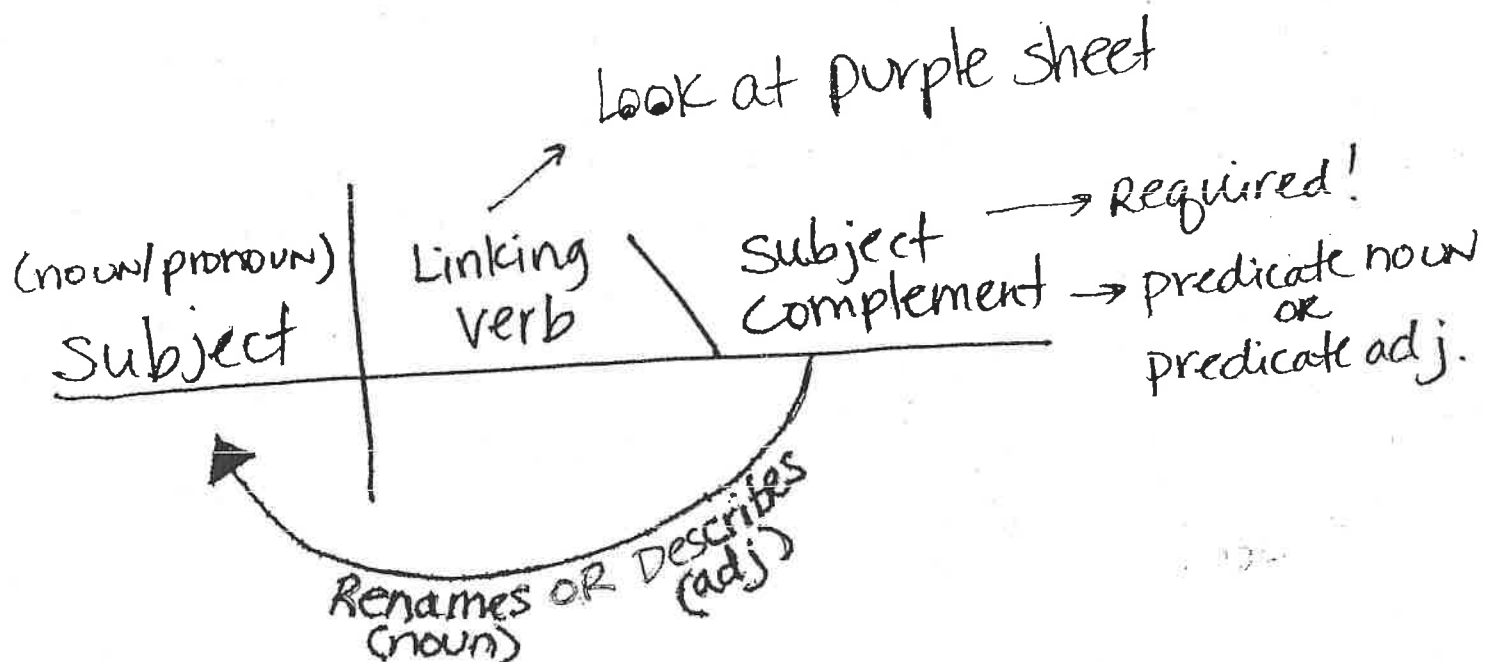 Look at purple sheet
(noun/pronoun)
Subject
Linking
verb
Subject
complement
→ Required!
→ predicate noun
OR
predicate adj.
Renames OR Describes
(noun)
(adj)